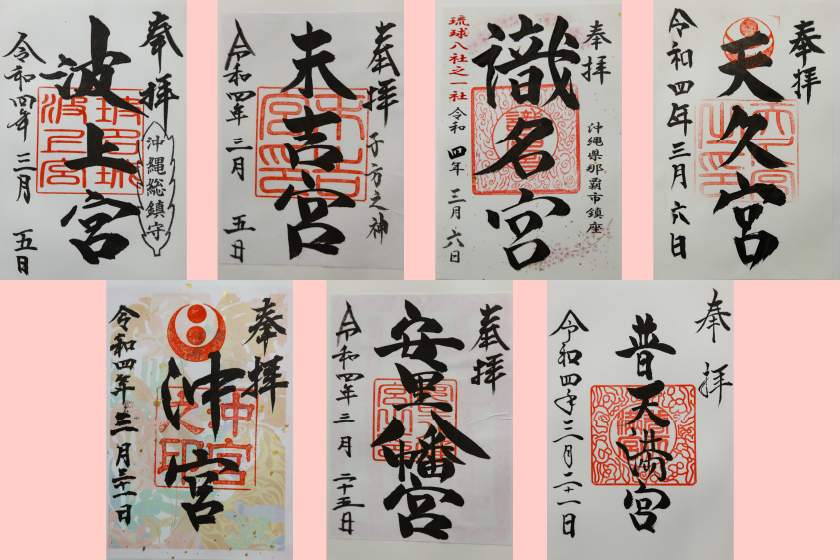 奉拝
沖縄総鎮守
波上宮
令和四年三月五日
奉拝
子方之神
末吉宮
令和四年三月五日
奉拝
沖縄県那覇市鎮座
識名宮
琉球八社之一社
令和四年三月六日
奉拝
天久宮
令和四年三月六日
奉拝
沖宮
令和四年三月二十一日
奉拝
安里八幡宮
令和四年三月二十五日
奉拝
普天満宮
令和四年三月二十一日